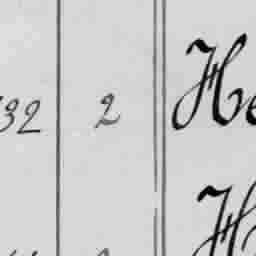 32 2 He
H